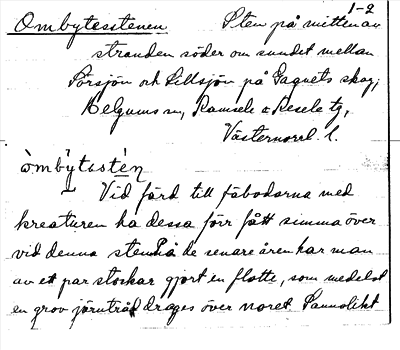 1-2
Ombytesstenen Sten på mitten av
stranden söder om sundet mellan
Försjön och Lillsjön på Gagnets skog,
Helgums sn, Ramsele & Resele tg,
Västernorrl. l.
òmbỳtastén
Vid färd till fäbodarna med
kreaturen ha dessa förr fått simma över
vid denna sten. På de senare åren har man
av ett par stockar gjort en flotte, som medelst
en grov järntråd drages över noret Sannolikt